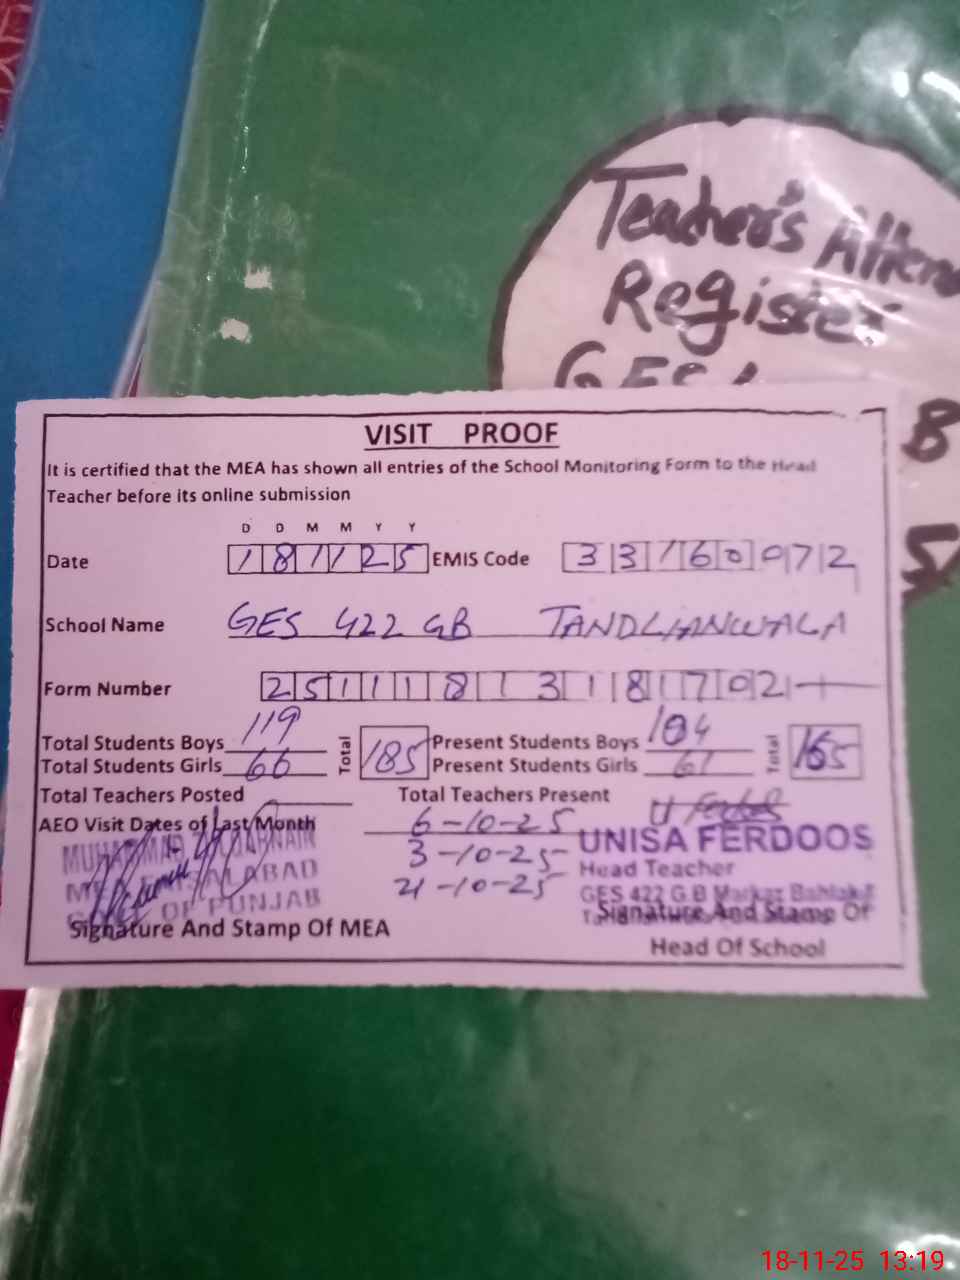 Teacher's Atten
Register
GES
B
5
VISIT PROOF
It is certified that the MEA has shown all entries of the School Monitoring Form to the Head
Teacher before its online submission
D D M M Y Y
Date 181125 EMIS Code 33160072
School Name GES 422 GB TANDLIANWALA
Form Number 25111813181702
Total Students Boys 119 Total 185 Present Students Boys 104 Total 165
Total Students Girls 66 Present Students Girls 61
Total Teachers Posted Total Teachers Present
AEO Visit Dates of Last Month 6-10-25
3-10-25
21-10-25
MUHAMMAD
OF PUNJAB
Signature And Stamp Of MEA
UNISA FERDOOS
Head Teacher
GES 422 G.B Markaz
Signature And Stamp Of
Head Of School
18-11-25 13:19